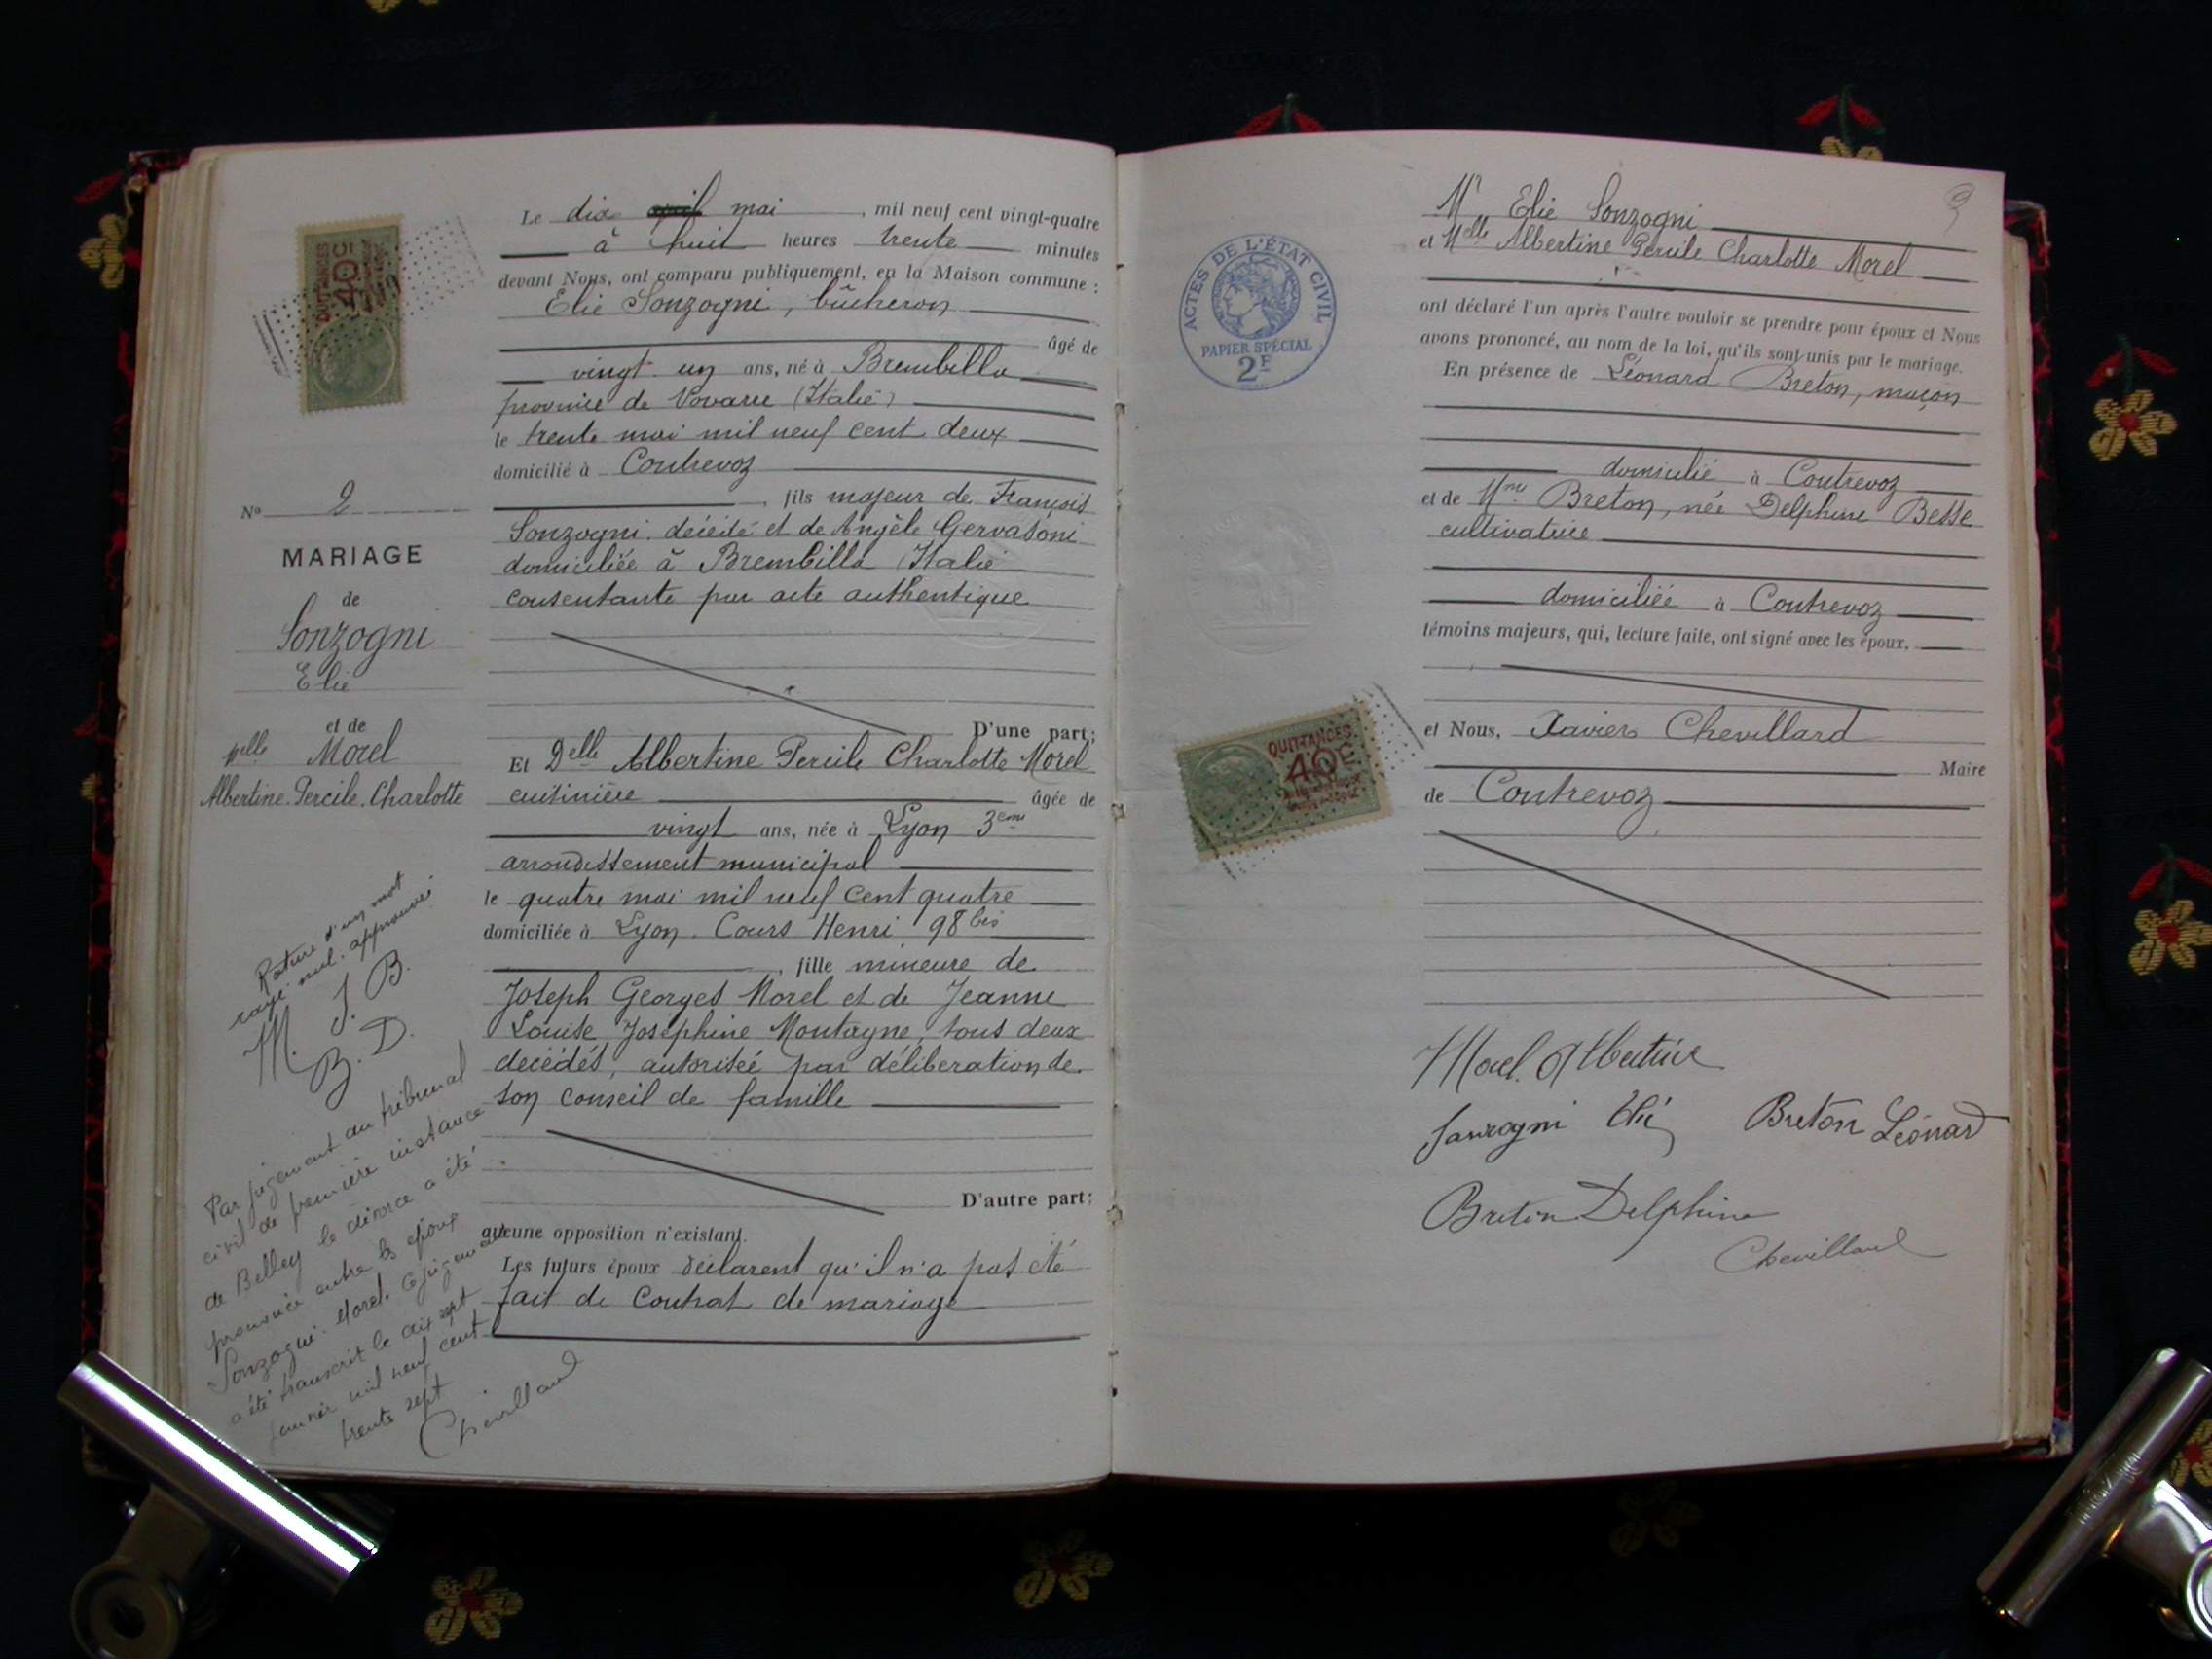 QUITTANCES
40c
Le dix avril mai, mil neuf cent vingt-quatre
à huit heures trente minutes
devant Nous, ont comparu publiquement, en la Maison commune :
Elie Sonzogni, bûcheron
âgé de
vingt un ans, né à Brembilla
province de Novare (Italie)
le trente mai mil neuf cent deux
domicilié à Contrevoz
, fils majeur de François
Sonzogni décédé et de Angèle Gervasoni
domiciliée à Brembilla (Italie
consentante par acte authentique
D'une part;
Et Delle Albertine Percile Charlotte Morel
cuisinière âgée de
vingt ans, née à Lyon 3eme
arrondissement municipal
le quatre mai mil neuf cent quatre
domiciliée à Lyon. Cours Henri 98 bis
, fille mineure de
Joseph Georges Morel et de Jeanne
Louise Joséphine Montagne, tous deux
décédés, autorisée par déliberation de
son conseil de famille
D'autre part;
aucune opposition n'existant.
Les futurs époux déclarent qu'il n'a pas été
fait de contrat de mariage
No 2
MARIAGE
de
Sonzogni
Elie
et de
Melle Morel
Albertine. Percile. Charlotte
Rature d'un mot
rayé nul. approuvée
M. S. B.
B. D.
Par jugement du tribunal
civil de première instance
de Belley le divorce a été
prononcé entre les époux
Sonzogni-Morel. Ce jugement
a été transcrit le dix sept
janvier mil neuf cent
trente sept
Chevillard
ACTES DE L'ÉTAT CIVIL
PAPIER SPÉCIAL
2F
QUITTANCES
40c
Mr Elie Sonzogni
et Melle Albertine Percile Charlotte Morel
ont déclaré l'un après l'autre vouloir se prendre pour époux et Nous
avons prononcé, au nom de la loi, qu'ils sont unis par le mariage.
En présence de Léonard Breton, maçon
domicilié à Contrevoz
et de Mme Breton, née Delphine Besse
cultivatrice
domiciliée à Contrevoz
témoins majeurs, qui, lecture faite, ont signé avec les époux,
et Nous, Xavier Chevillard
Maire
de Contrevoz
Morel. Albertine
Sonzogni Elie Breton Léonard
Breton Delphine
Chevillard